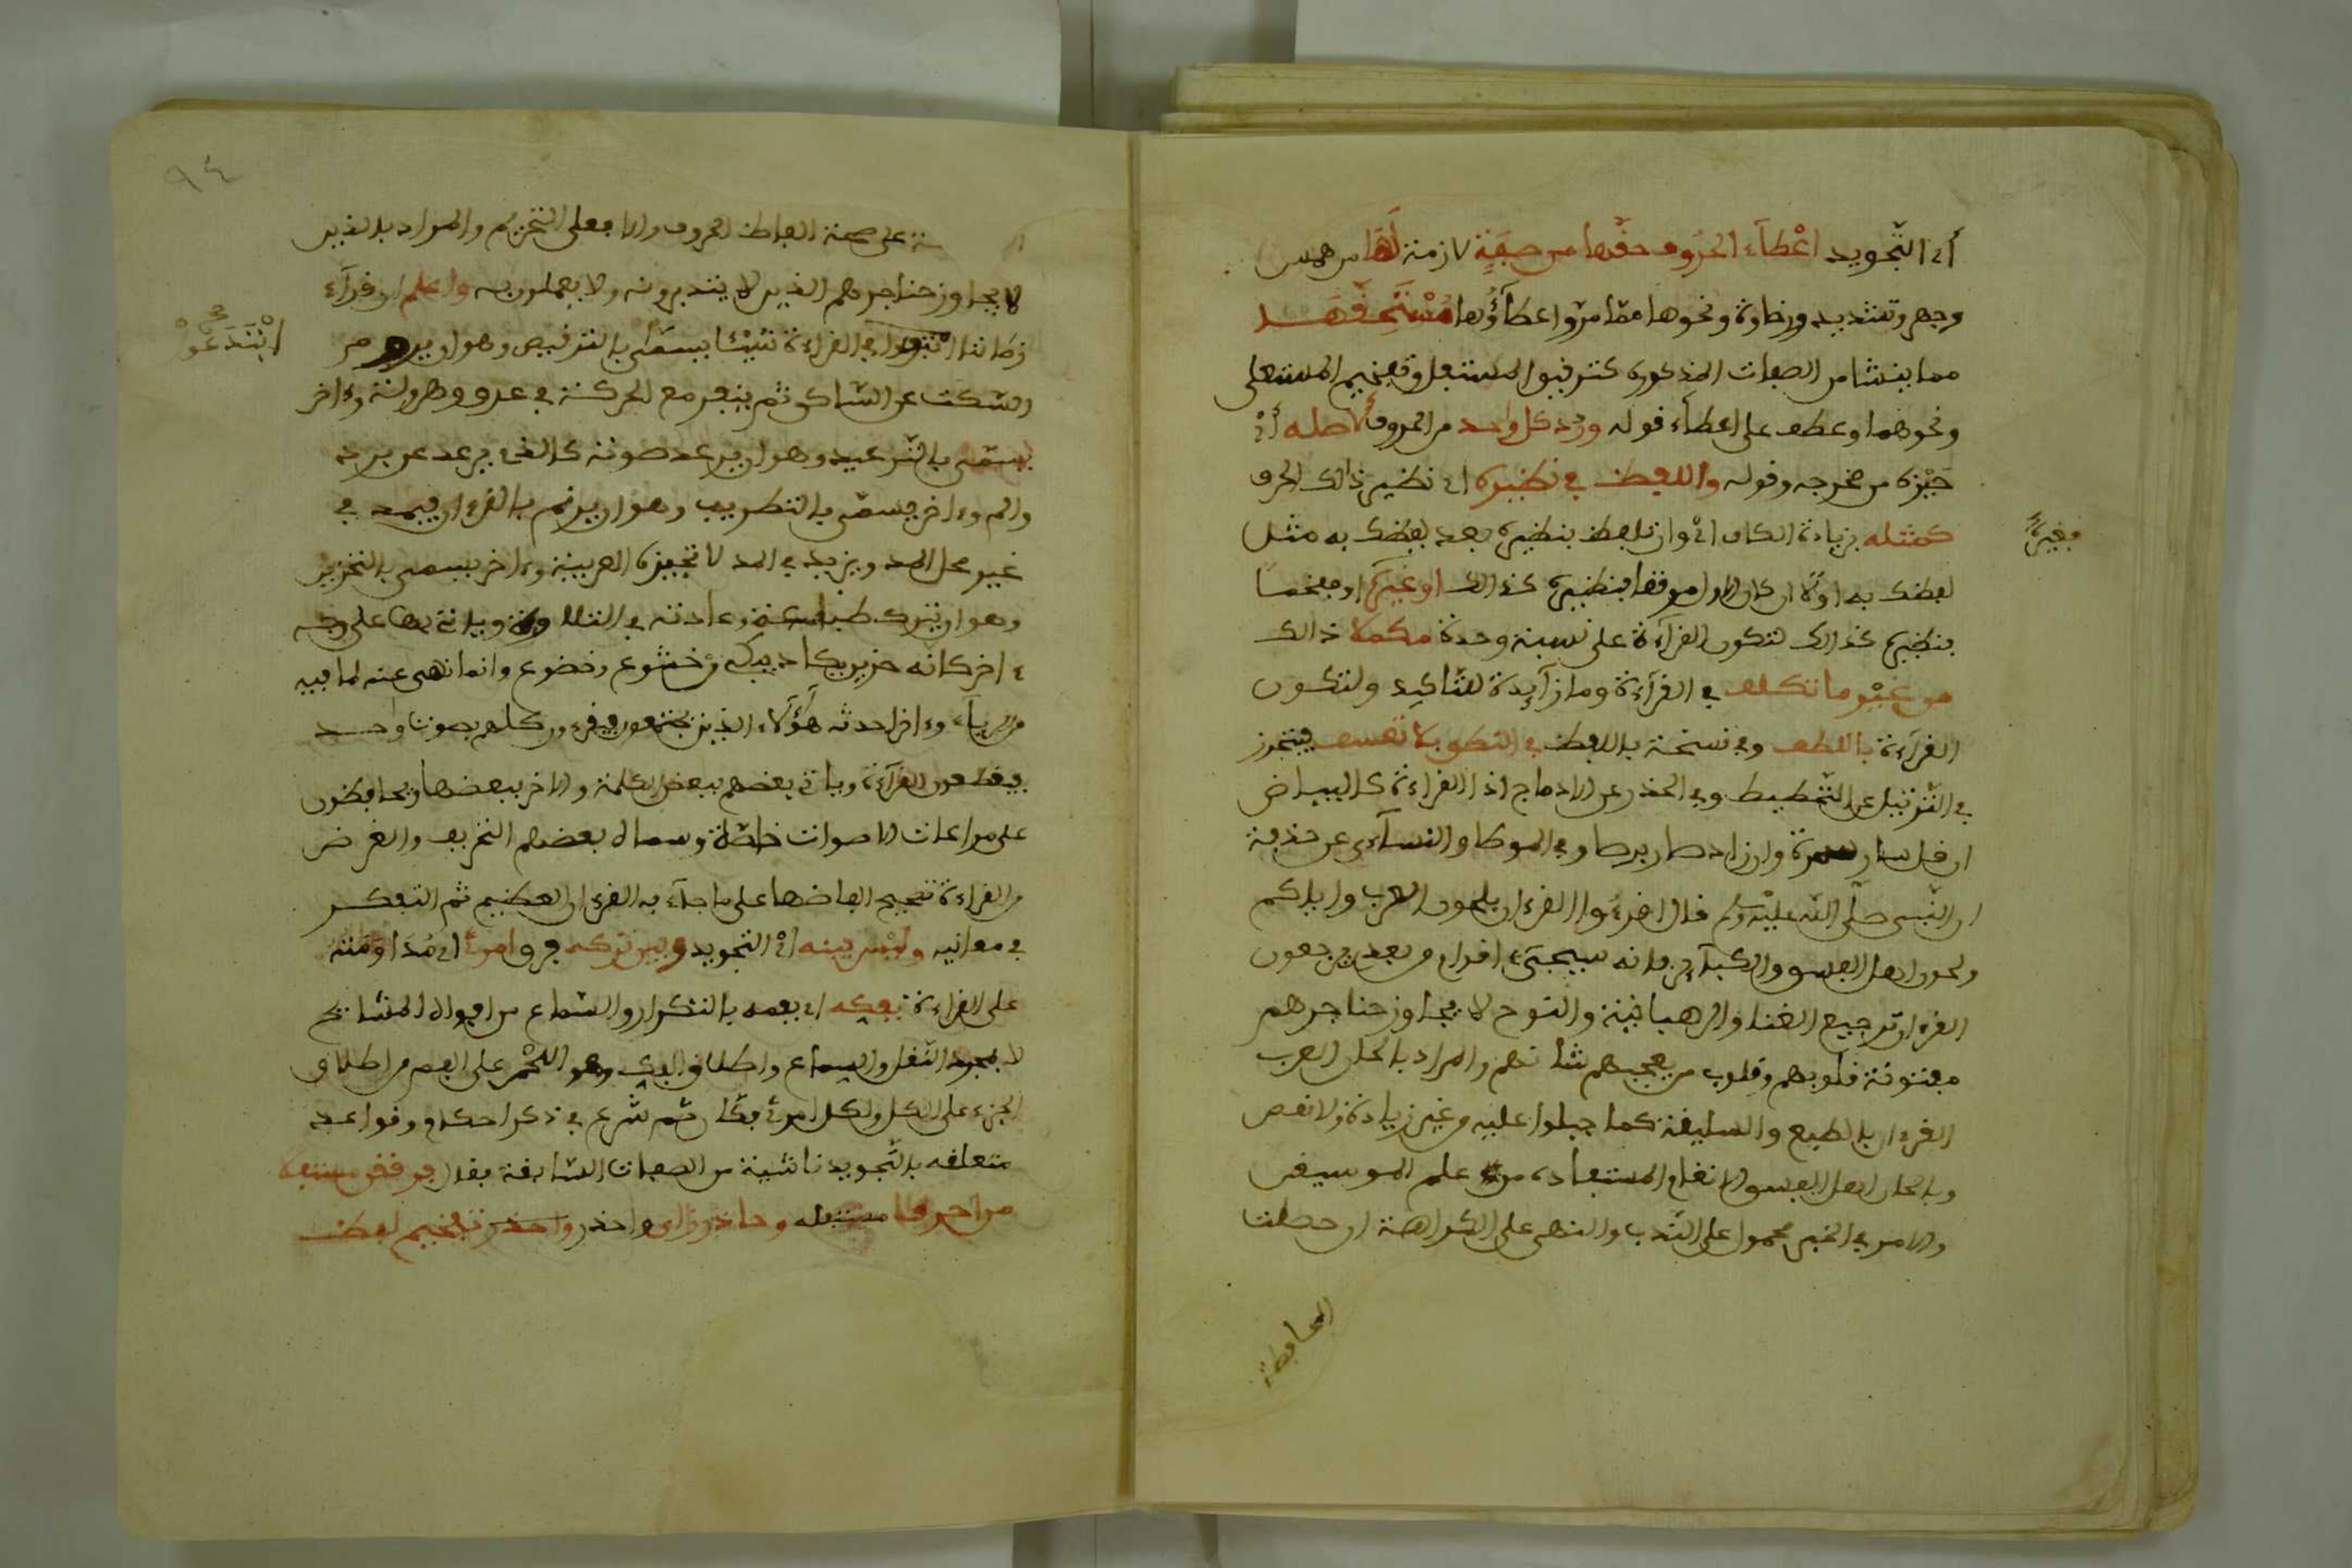 أي التّجويد اعْطآء الحرَوف حقّها من صِفَةٍ لازمة لَهَا من همس
وجهر وتشديد ورخاوة ونحوها ممّا مرّوا عطآؤُها مُسْتَحَقَّهَــا
مما ينشا من الصفات المذكورة كترقيق المستفل وتفخيم المستعلي
ونحوهما وعطف على اعطآء قوله ورَد كل واحد من الحروف لأصله أيْ
حَيِّزه من مخرجه وقوله واللفظ في نظيره اي نظير ذالك الحرف
كمثله بزيادة الكاف ايْ وان تلفظ بنظيره بعد لفظك به مثل
فغيره
لفظك به اوّلا ان كان الاول مرققا فنظيره كذالك او غيره او مفخما
فنظيره كذالك لتكون القرآءة على نسبة وحدة مكملا ذالك
من غيْر ما تكلف في القرآءة وما زآيدة للتّاكيد ولتكون
القرآءة باللطف وفي نسخة باللفظ في النطق بلا تعسف فيتحرز
في التّرتيل عن التّمطيط وفي الحذر عن الادماج اذ القراءة كالبياض
ان قل صار سمرة وان زاد صار برصا وفي الموطا والنسآءي عن حذيفة
ان النّبي صلّى اللّه عليْه وسلم قال اقرءوا القرءان بلحون العرب واياكم
ولحون اهل الفسق والكبآير فانه سيجيء اقوام من بعدي يرجعون
القرءان ترجيع الغنا والرهبانية والنوح لا يجاوز حناجرهم
مفتونة قلوبهم وقلوب من يعجبهم شانهم والمراد بالحان العرب
القرءان بالطبع والسليقة كما جبلوا عليه من غير زيادة ولا نقص
وبالحان اهل الفسق الانغام المستفادة من علم الموسيقى
والامر في الخبر محمول على النّدب والنهي على الكراهة ان حصلت
المحافظة
٩٤
على صحة الفاظ الحروف والا فعلى التحريم والمراد بالذين
لا يجاوز حناجرهم الذين لا يتدبرونه ولا يعملون به واعلم ان قرآء
زماننا ابتدعوا في القراءة شيئا يسمّى بالترقيص وهو ان يروم
ابْتَدَعُوْ
السّكت على السّاكن ثم ينفر مع الحركة في عدو وهرولة وءاخر
يسمّى بالتّرعيد وهو ان يرعد صوته كالذي يرعد من برد
والم وءاخر يسمّى بالتطريب وهو ان يترنم بالقرءان فيمد في
غير محل المد ويزيد في المد لا تجيزه العربية وءاخر يسمى بالتحزين
وهو ان يترك طباعه وعادته في التلاوة وياتي بها على وجه
ءاخر كانه حزين يكاد يبكي من خشوع وخضوع وانما نهي عنه لما فيه
من الرياء وءاخر احدثه هؤلاء الذين يجتمعون فيقرءون كلهم بصوت واحد
فيقطعون القرآءة وياتي بعضهم ببعض الكلمة والاخر ببعضها ويحافظون
على مراعات الاصوات خاصّة وسماه بعضهم التحريف والغرض
من القراءة تصحيح الفاظها على ما جآء به القرءان العظيم ثم التفكر
في معانيه وليْس بينه أيْ التجويد وبين تركه فرق امرئ اي مُدَاوَمَته
على القراءة بفكه اي بفمه بالتكرار والسّماع من افواه المشايخ
لا بمجرد النّقل والسماع واطلاق الفك وهو اللّحْم على الفم من اطلاق
الجزء على الكل ولكل امرئ فكان ثم شرع في ذكر احكام وقواعد
متعلقه بالتّجويد ناشية من الصفات السّابقة فقال فرققن مستفلا
من احرف مستفله وحاذرن اي واحذرن تفخيم لفظ